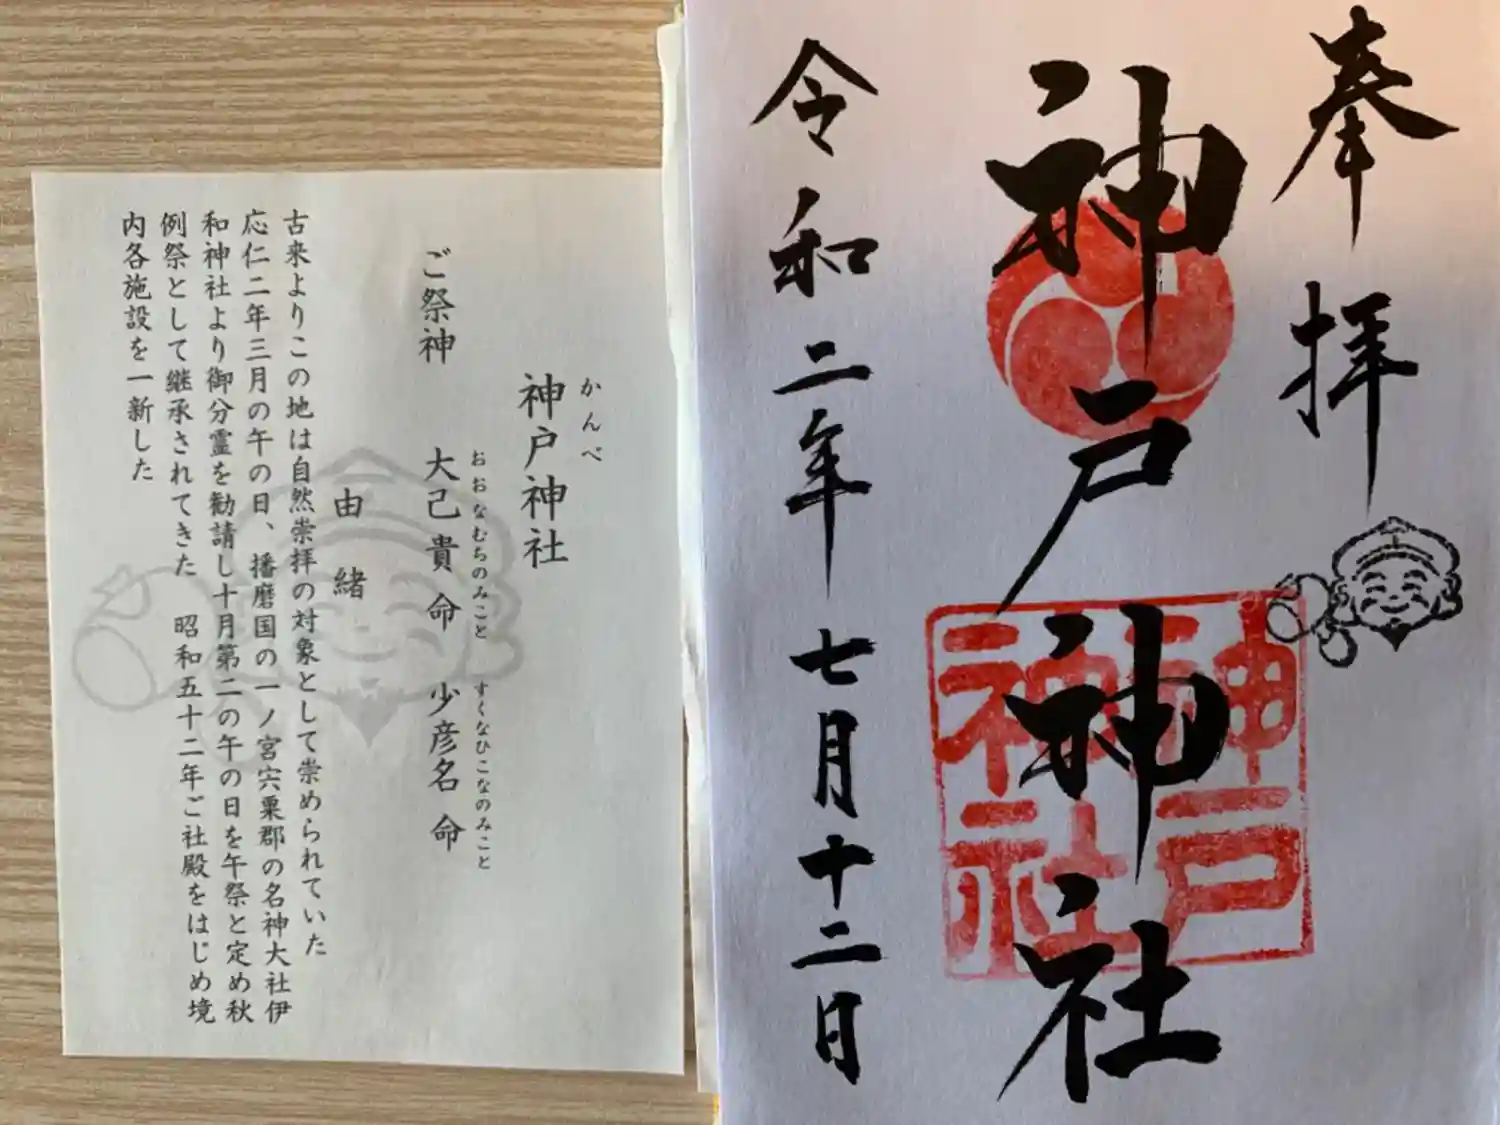 かんべ
神戸神社
ご祭神
おおなむちのみこと すくなひこなのみこと
大己貴命 少彦名命
由緒
古来よりこの地は自然崇拝の対象として崇められていた
応仁二年三月の午の日、播磨国の一ノ宮宍粟郡の名神大社伊
和神社より御分霊を勧請し十月第二の午の日を午祭と定め秋
例祭として継承されてきた 昭和五十二年ご社殿をはじめ境
内各施設を一新した
奉拝
神戸神社
神戸
神社
令和二年七月十二日